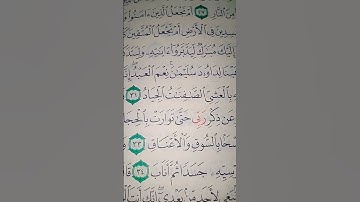 مِنَ النَّارِ ٢٧ أَمْ نَجْعَلُ الَّذِينَ ءَامَنُوا و
سِدِينَ فِي الْأَرْضِ أَمْ نَجْعَلُ الْمُتَّقِينَ كَ
إِلَيْكَ مُبَارَكٌ لِّيَدَّبَّرُوا ءَايَاتِهِ وَلِيَ
هَبْنَا لِدَاوُودَ سُلَيْمَانَ نِعْمَ الْعَبْدُ إِنَّهُ
هِ بِالْعَشِيِّ الصَّافِنَاتُ الْجِيَادُ ٣١
عَن ذِكْرِ رَبِّي حَتَّى تَوَارَتْ بِالْحِجَا
سْحًا بِالسُّوقِ وَالْأَعْنَاقِ ٣٣ و
رْسِيِّهِ جَسَدًا ثُمَّ أَنَابَ ٣٤ قَا
نۢبَغِي لِأَحَدٍ مِّنۢ بَعْدِي إِنَّكَ أَنتَ الْ